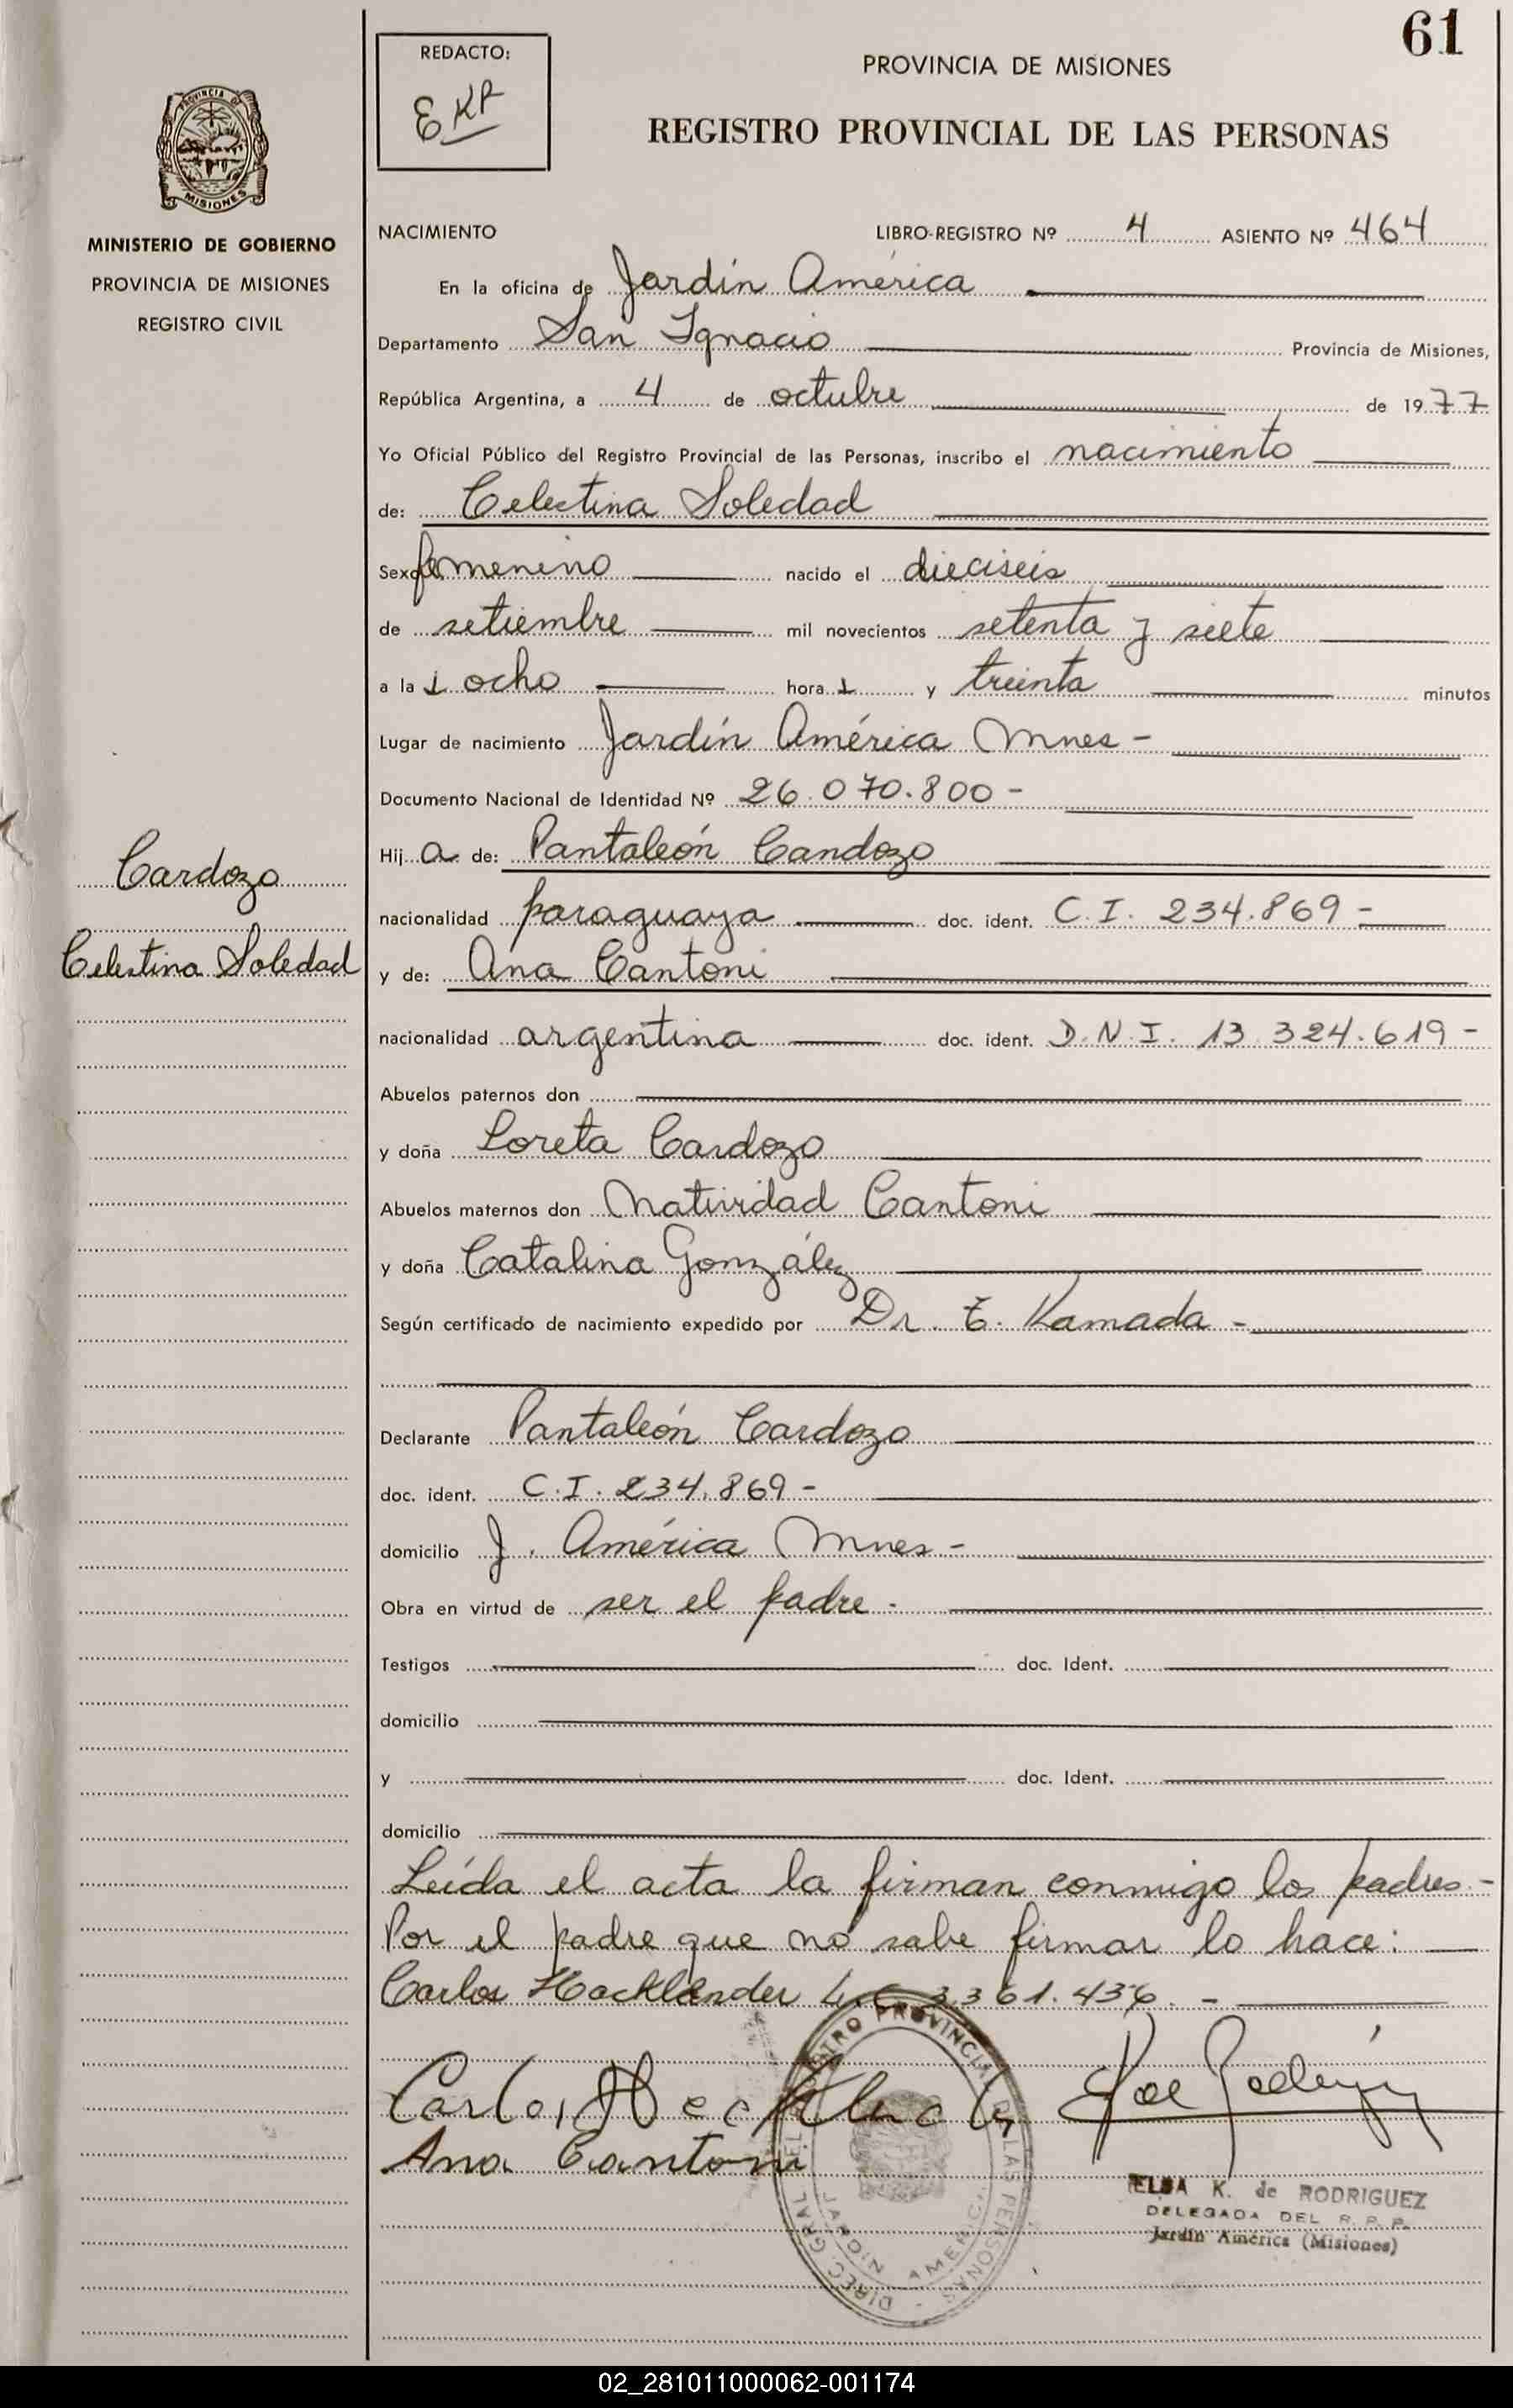 61
REDACTO:
EKR
PROVINCIA DE MISIONES
REGISTRO PROVINCIAL DE LAS PERSONAS
PROVINCIA DE
MISIONES
MINISTERIO DE GOBIERNO
PROVINCIA DE MISIONES
REGISTRO CIVIL
NACIMIENTO LIBRO-REGISTRO Nº 4 ASIENTO Nº 464
En la oficina de Jardín América
Departamento San Ignacio Provincia de Misiones,
República Argentina, a 4 de octubre de 1977
Yo Oficial Público del Registro Provincial de las Personas, inscribo el nacimiento
de: Celestina Soledad
Sexo femenino nacido el dieciseis
de setiembre mil novecientos setenta y siete
a las ocho horas y treinta minutos
Lugar de nacimiento Jardín América Mnes -
Documento Nacional de Identidad Nº 26.070.800 -
Hija de: Pantaleón Candozo
Cardozo
nacionalidad paraguaya doc. ident. C.I. 234.869 -
Celestina Soledad
y de: Ana Cantoni
nacionalidad argentina doc. ident. D.N.I. 13.324.619 -
Abuelos paternos don
y doña Loreta Cardozo
Abuelos maternos don Natividad Cantoni
y doña Catalina González
Según certificado de nacimiento expedido por Dr. E. Kamada -
Declarante Pantaleón Cardozo
doc. ident. C.I. 234.869 -
domicilio J. América Mnes -
Obra en virtud de ser el padre -
Testigos doc. Ident.
domicilio
y doc. Ident.
domicilio
Leída el acta la firman conmigo los padres -
Por el padre que no sabe firmar lo hace:
Carlos Hocklander 3.361.436. -
Carlos
Ana Cantoni
DIREC. GRAL. DEL REGISTRO PROVINCIAL DE LAS PERSONAS
JARDIN AMERICA
ELSA K. de RODRIGUEZ
DELEGADA DEL R.P.P.
Jardín América (Misiones)
02_281011000062-001174